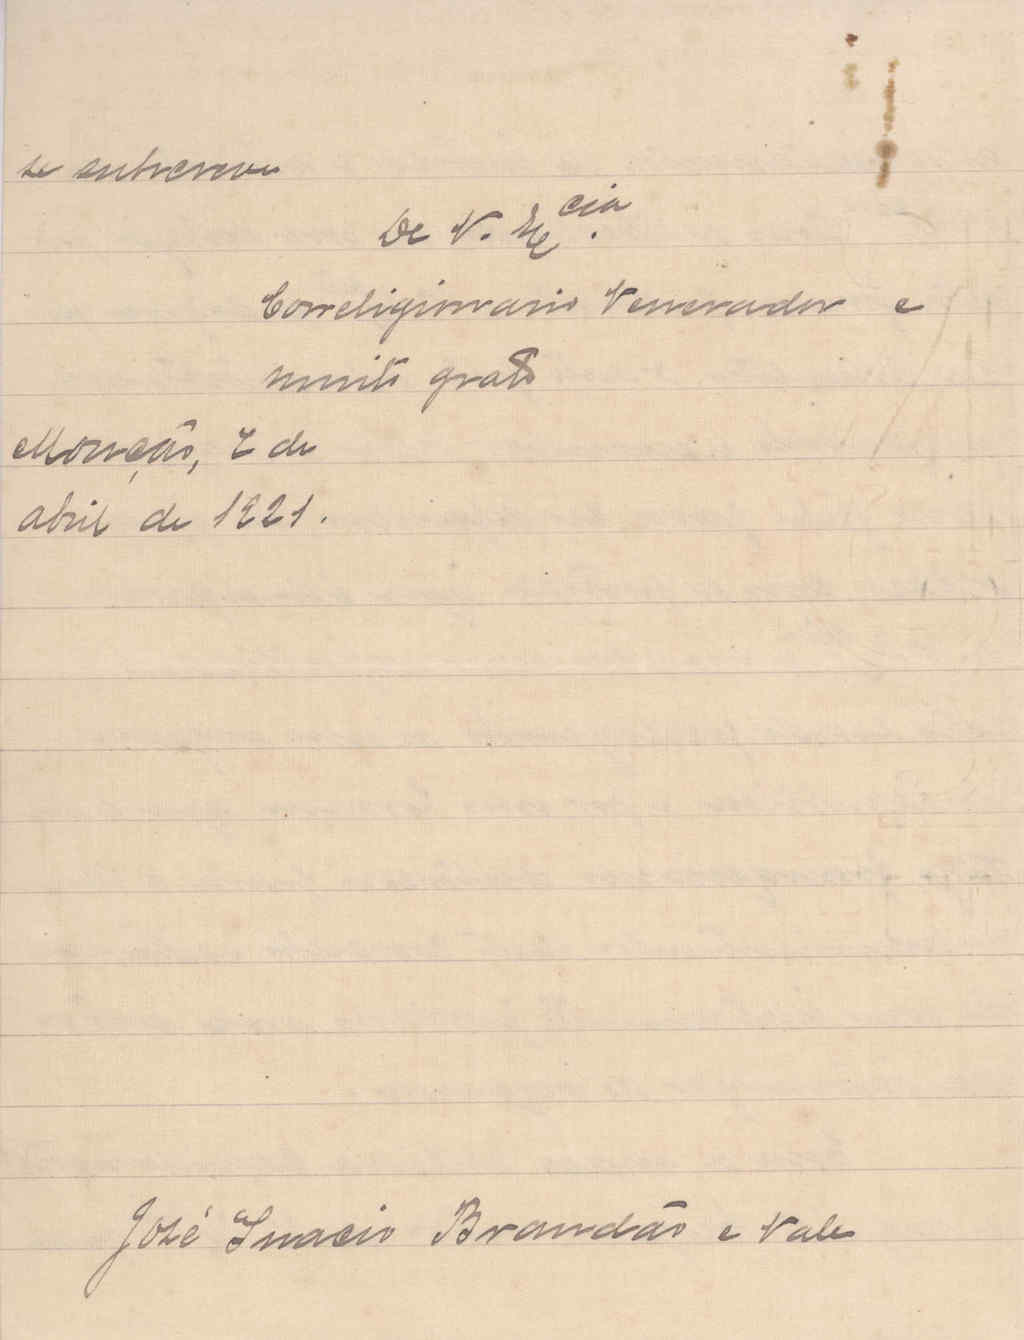 se subscreve
De V. Ex.cia
Correligionario Venerador e
muito grato
Monção, 7 de
abril de 1921.
José Inacio Brandão e Vale